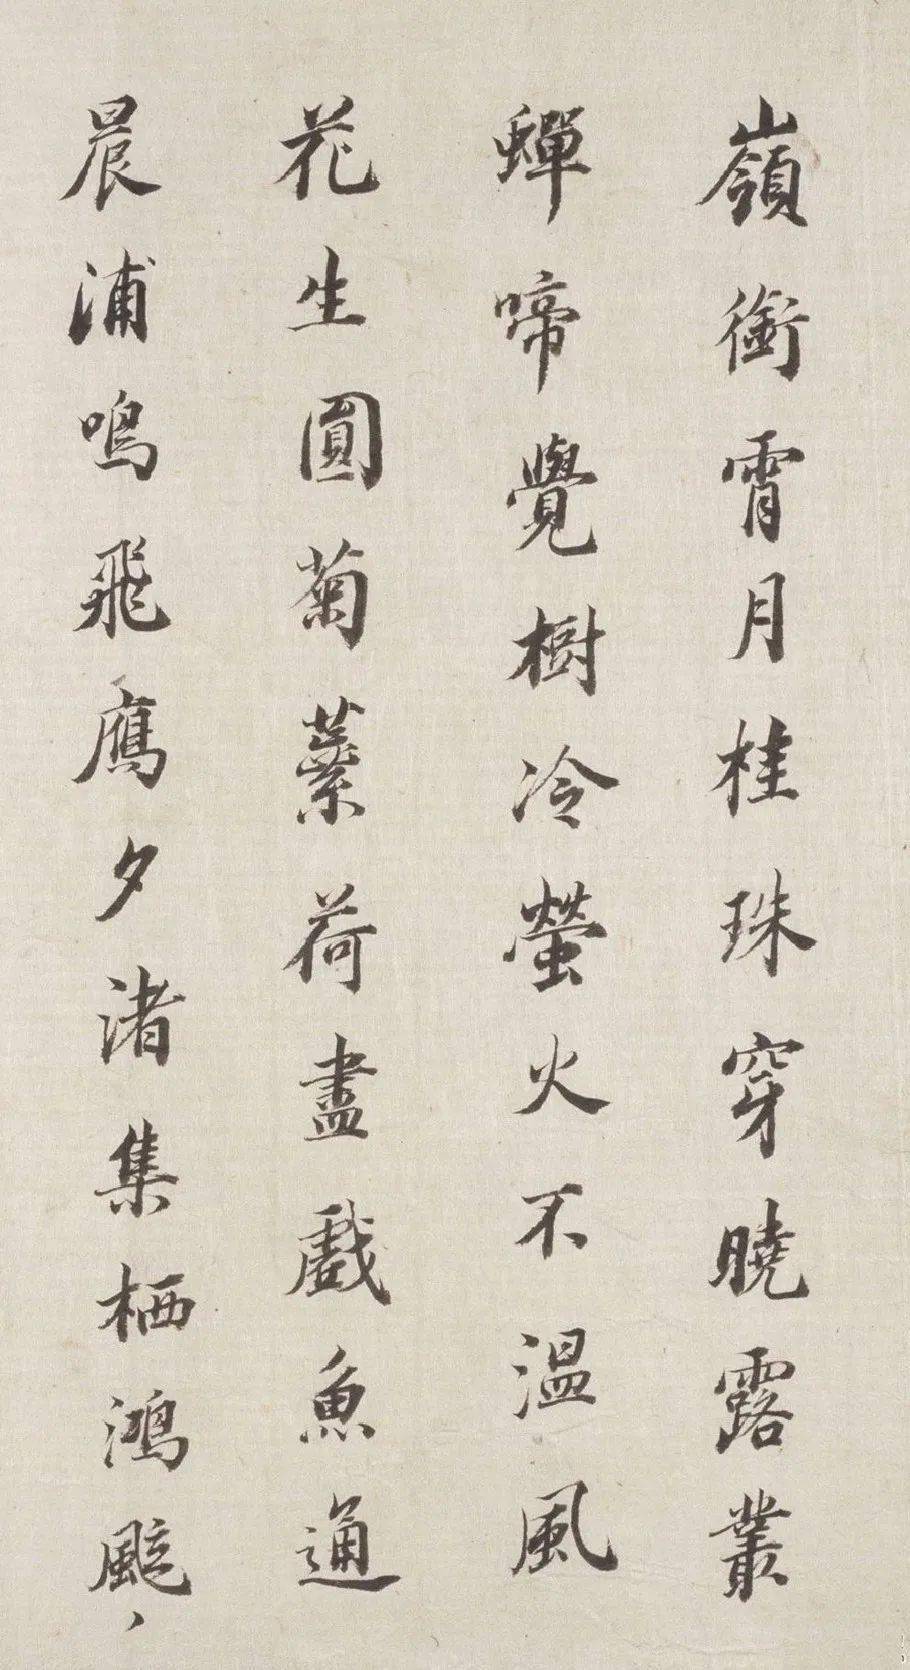 嶺銜霄月桂珠穿曉露叢
蟬啼覺樹冷螢火不温風
花生圓菊蘂荷盡戲魚通
晨浦鳴飛鴈夕渚集栖鴻颯、